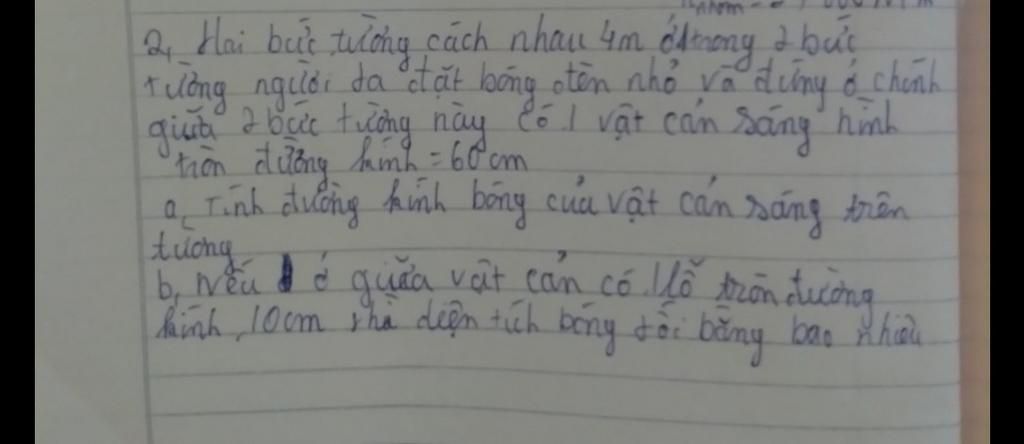 2, Hai bức tường cách nhau 4m ở trong 2 bức
tường người ta đặt bóng đèn nhỏ và đứng ở chính
giữa 2 bức tường này có 1 vật cản sáng hình
tròn đường kính = 60 cm
a, Tính đường kính bóng của vật cản sáng trên
tường
b, Nếu ở giữa vật cản có lỗ tròn đường
kính 10cm thì diện tích bóng tối bằng bao nhiêu